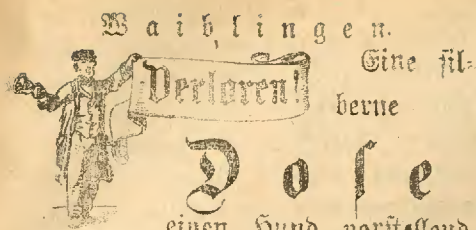 Waiblingen.
Verloren!
Eine sil-
berne
Dose
einen Hund vorstellend